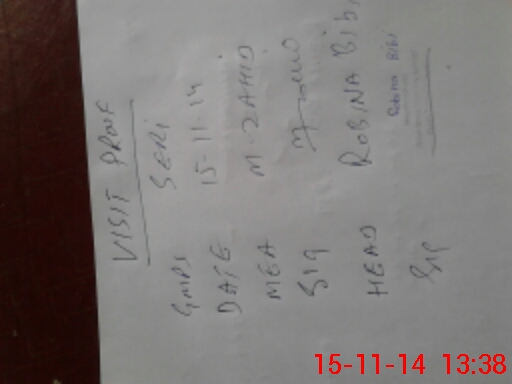 VISIT PROOF
GMPS SERI
DATE 15-11-14
MEA M. ZAHID
Sig
HEAD ROBINA BIBI
Sig Robina Bibi
15-11-14 13:38